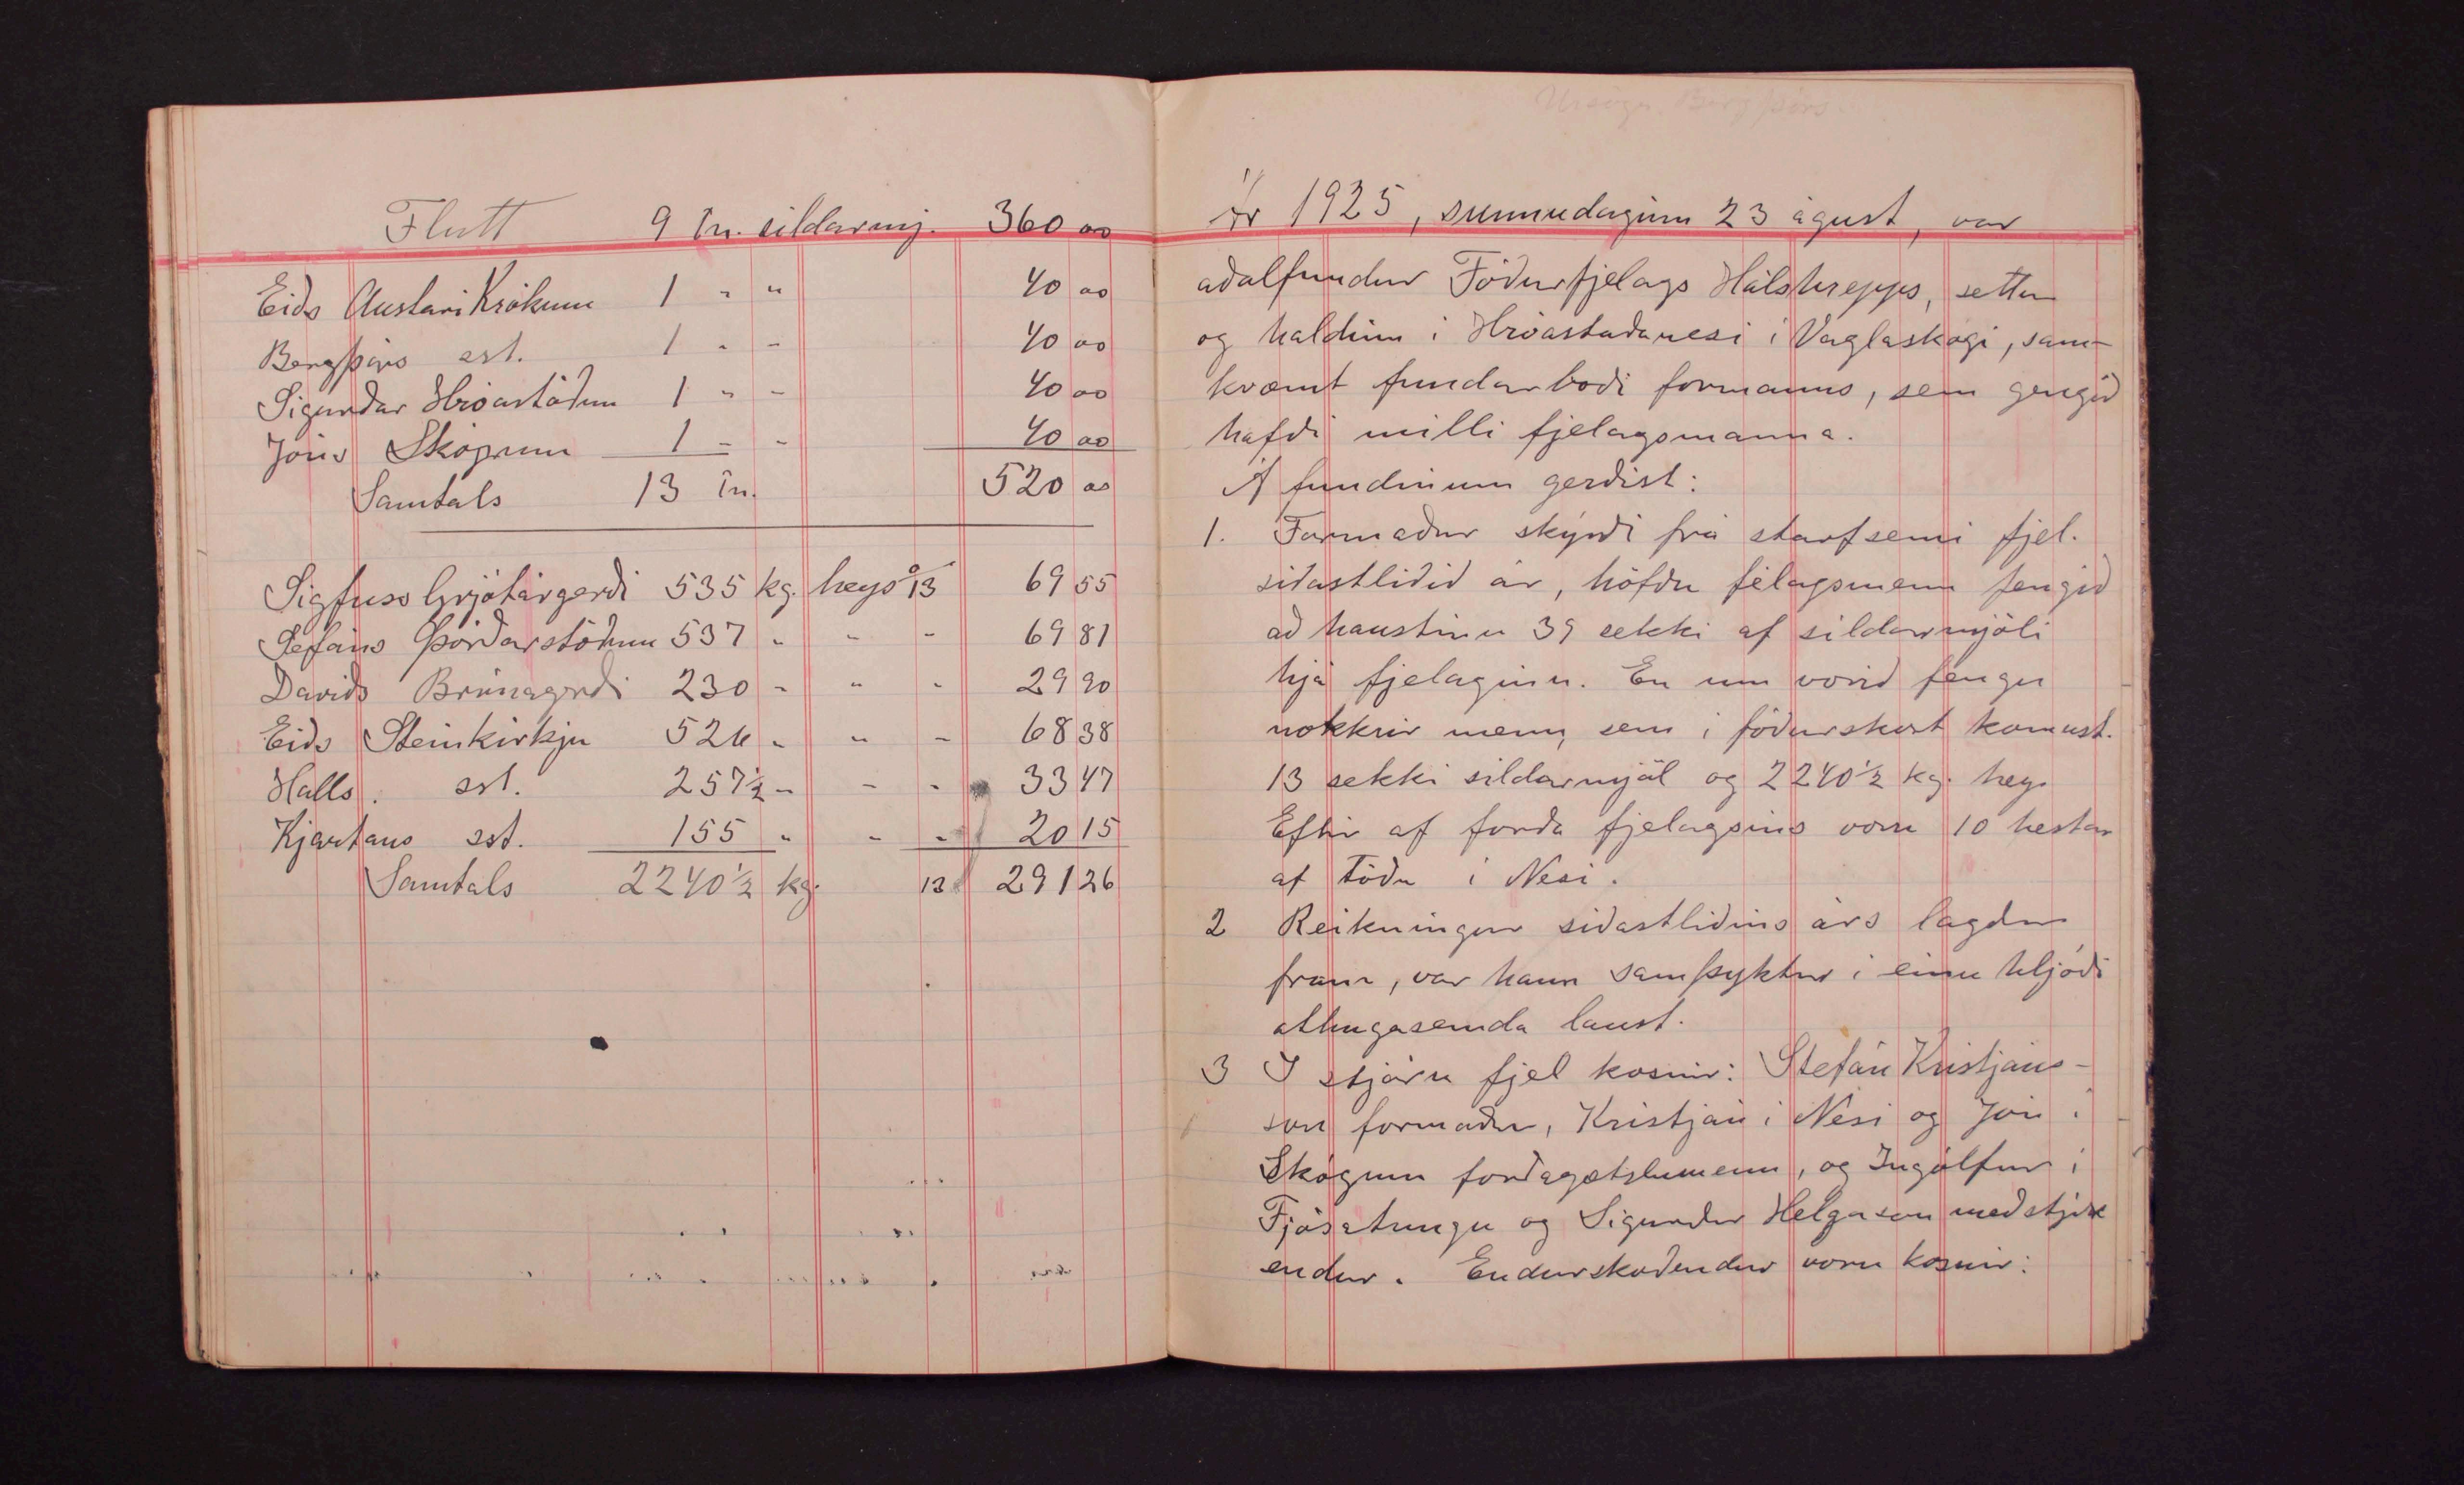 Flutt 9 tn. síldarmj. 360 00
Eiðs Austari Krókum 1 " " 40 00
Bergþórs sst. 1 " " 40 00
Sigurðar Hróastöðum 1 " " 40 00
Jóns Skógum 1 " " 40 00
Samtals 13 tn. 520 00
Sigfúss Grjótárgerði 535 kg. heys 13 69 55
Stefáns Þórðarstöðum 537 " " " 69 81
Davíðs Brúnagerði 230 " " " 29 90
Eiðs Steinkirkju 526 " " " 68 38
Halls. sst. 257½ " " " 33 47
Kjartans sst. 155 " " " 20 15
Samtals 2240½ kg. 13 291 26
Bergþórs
Ár 1925, sunnudaginn 23 ágúst, var
aðalfundur Fóðurfjelags Hálshrepps, settur
og haldinn í Hróastaðanesi í Vaglaskógi, sam-
kvæmt fundarboði formanns, sem gengið
hafði milli fjelagsmanna.
Á fundinum gerðist:
1. Formaður skýrði frá starfsemi fjel.
síðastliðið ár, höfðu félagsmenn fengið
að haustinu 39 sekki af síldarmjöli
hjá fjelaginu. En um vorið fengu
nokkrir menn, sem í fóðurskort komust.
13 sekki síldarmjöl og 2240½ kg. hey.
Eftir af forða fjelagsins voru 10 hestar
af töðu í Nesi.
2 Reikningur síðastliðins árs lagður
fram, var hann samþyktur í einu hljóði
athugasemda laust.
3 I stjórn fjel kosnir: Stefán Kristjáns-
son formaður, Kristján í Nesi og Jón í
Skógum forðagætslumenn, og Ingólfur í
Fjósatungu og Sigurður Helgason meðstjórn
endur. Endurskoðendur voru kosnir: